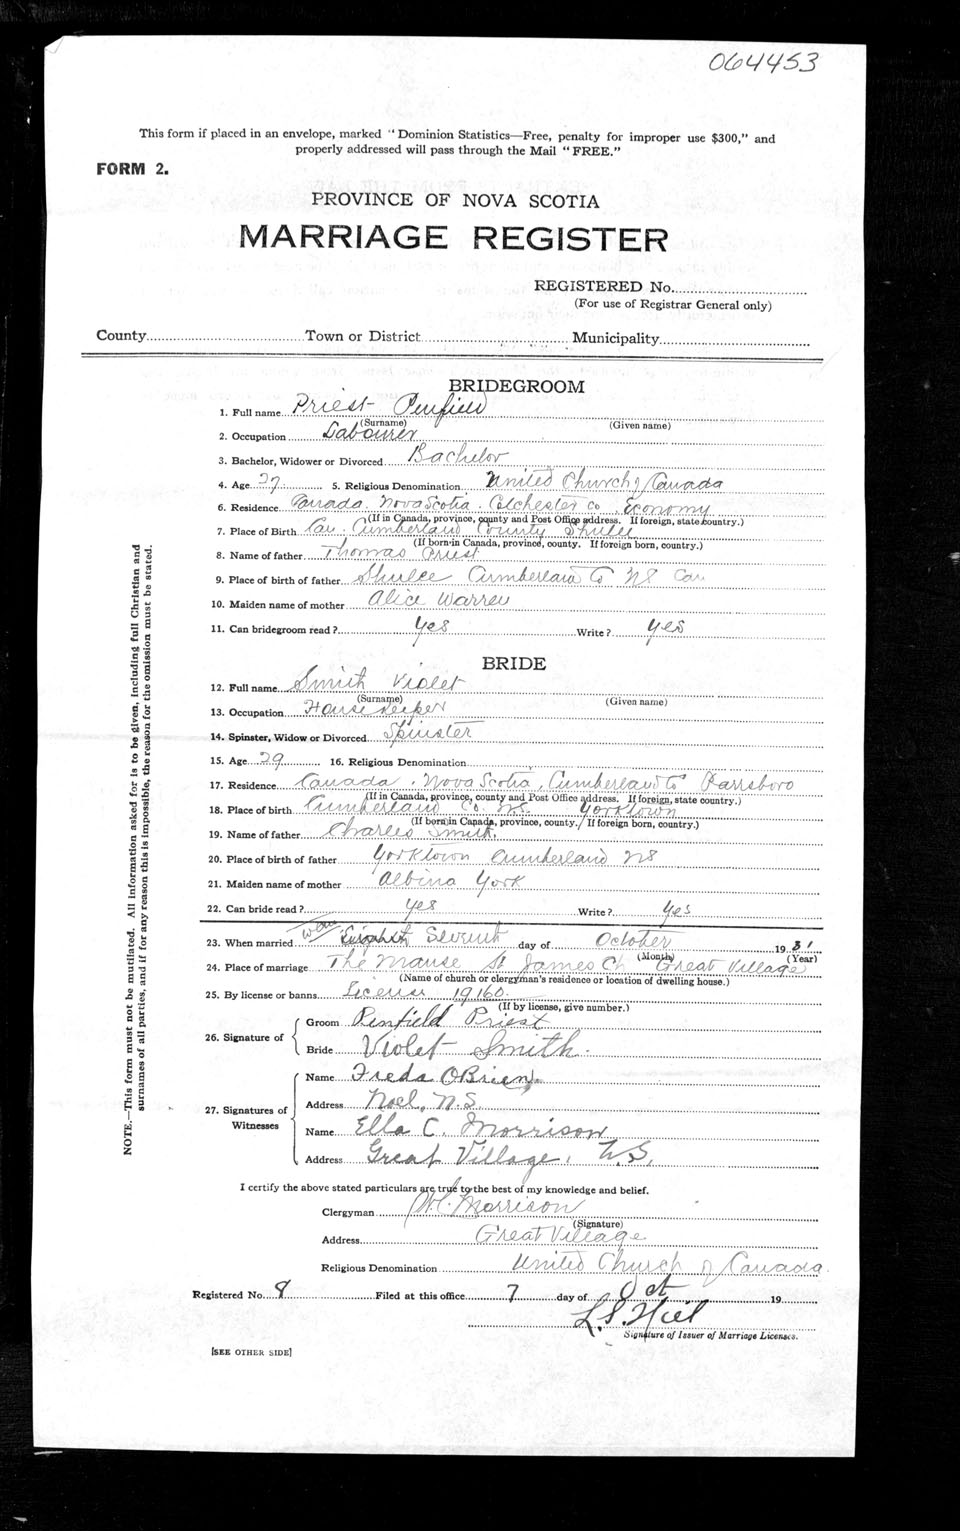 064453
This form if placed in an envelope, marked "Dominion Statistics—Free, penalty for improper use $300," and
properly addressed will pass through the Mail "FREE."
FORM 2.
PROVINCE OF NOVA SCOTIA
MARRIAGE REGISTER
REGISTERED No.
(For use of Registrar General only)
County Town or District Municipality
BRIDEGROOM
1. Full name Priest Penfield
(Surname) (Given name)
2. Occupation Labourer
3. Bachelor, Widower or Divorced Bachelor
4. Age 27 5. Religious Denomination United Church of Canada
6. Residence Canada, Nova Scotia. Colchester Co, Economy
(If in Canada, province, county and Post Office address. If foreign, state country.)
7. Place of Birth Can. Cumberland County
(If born in Canada, province, county. If foreign born, country.)
8. Name of father Thomas Priest
9. Place of birth of father Shulee Cumberland Co NS Can
10. Maiden name of mother Alice Warren
11. Can bridegroom read? yes Write? yes
BRIDE
12. Full name Smith Violet
(Surname) (Given name)
13. Occupation House Keeper
14. Spinster, Widow or Divorced Spinster
15. Age 29 16. Religious Denomination
17. Residence Canada. Nova Scotia, Cumberland Co Parrsboro
(If in Canada, province, county and Post Office address. If foreign, state country.)
18. Place of birth Cumberland Co. NS Yorktown
(If born in Canada, province, county. If foreign born, country.)
19. Name of father Charles Smith.
20. Place of birth of father Yorktown Cumberland NS
21. Maiden name of mother Albina York
22. Can bride read? yes Write? yes
23. When married Seventh day of October 1931
(Month) (Year)
24. Place of marriage The Manse St James Ch Great Village
(Name of church or clergyman's residence or location of dwelling house.)
25. By license or banns License 19160.
(If by license, give number.)
26. Signature of
Groom Penfield Priest
Bride Violet Smith.
27. Signatures of Witnesses
Name Freda OBrien.
Address Noel, N.S.
Name Ella C. Morrison
Address Great Village, N.S.
I certify the above stated particulars are true to the best of my knowledge and belief.
Clergyman Morrison
(Signature)
Address Great Village
Religious Denomination United Church of Canada.
Registered No. 8 Filed at this office 7 day of Oct 19
Signature of Issuer of Marriage Licenses.
[SEE OTHER SIDE]
NOTE.—This form must not be mutilated. All information asked for is to be given, including full Christian and
surnames of all parties, and if for any reason this is impossible, the reason for the omission must be stated.